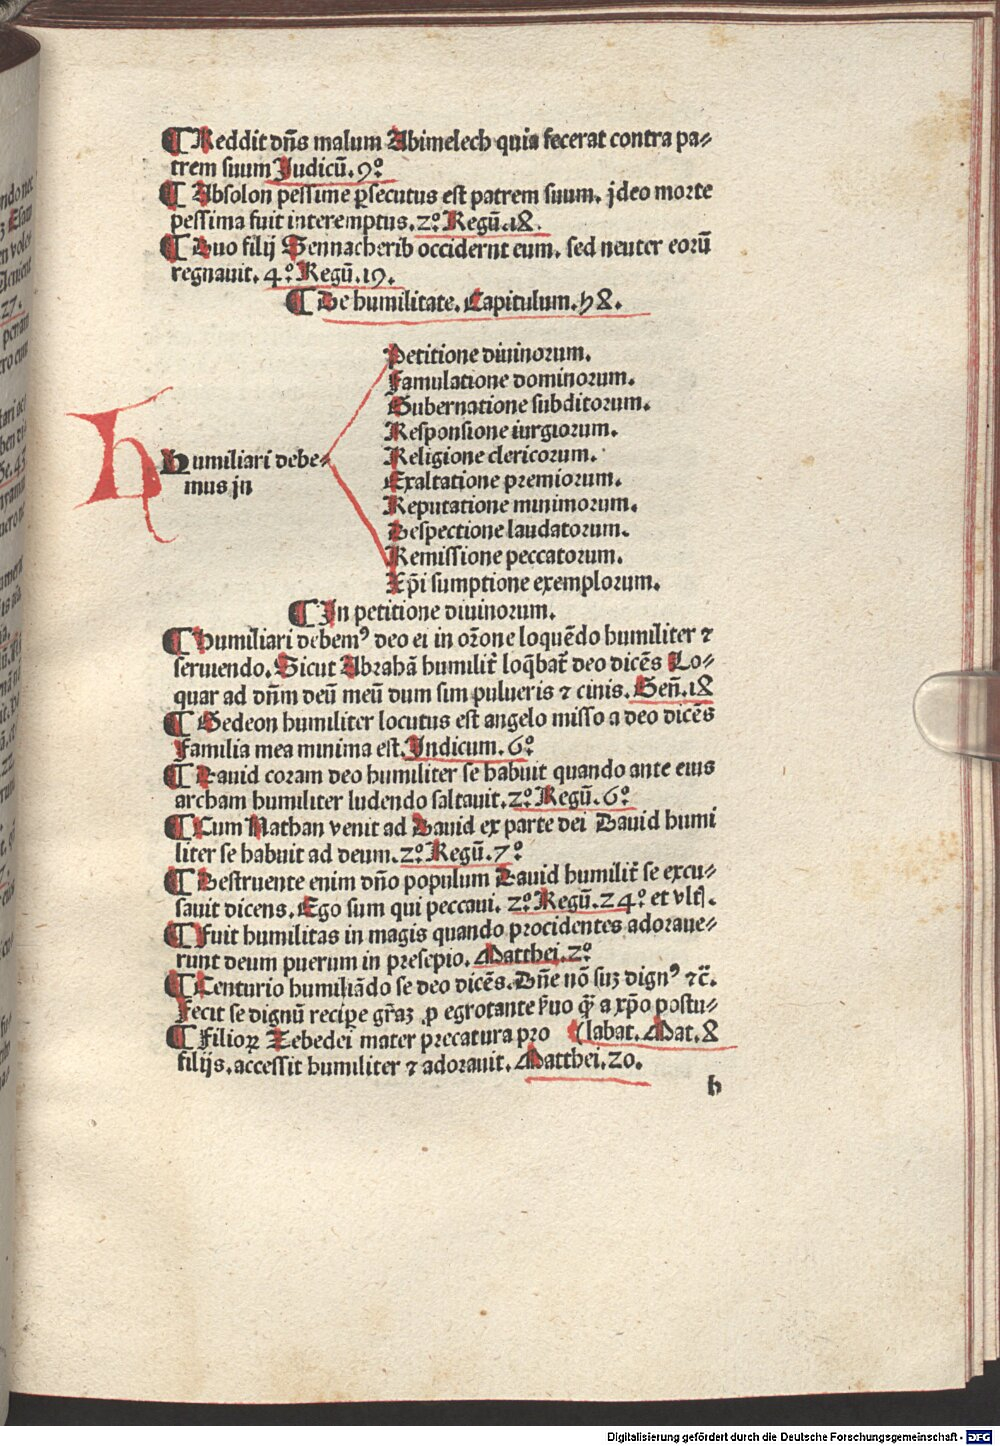 ¶ Reddit dn̄s malum Abimelech quia fecerat contra pa⸗
trem suum Judicū. 9º
¶ Absolon pessime ꝑsecutus est patrem suum. jdeo morte
pessima fuit interemptus. 2º Regū. 18.
¶ Duo filij Sennacherib occidernt eum. sed neuter eorū
regnauit. 4º Regū. 19.
¶ De humilitate. Capitulum. 58.
h
Humiliari debe⸗
mus jn
Petitione diuinorum.
Famulatione dominorum.
Gubernatione subditorum.
Responsione iurgiorum.
Religione clericorum.
Exaltatione premiorum.
Reputatione minimorum.
Despectione laudatorum.
Remissione peccatorum.
Xp̄i sumptione exemplorum.
¶ In petitione diuinorum.
¶ Humiliari debemꝰ deo ei in or̄one loquēdo humiliter ⁊
seruendo. Sicut Abrahā humilit̄ loq̄bat̄ deo dicēs Lo⸗
quar ad dn̄m deū meū dum sim pulueris ⁊ cinis. Gen̄. 18
¶ Gedeon humiliter locutus est angelo misso a deo dicēs
Familia mea minima est. Judicum. 6º
¶ Dauid coram deo humiliter se habuit quando ante eius
archam humiliter ludendo saltauit. 2º Regū. 6º
¶ Cum Nathan venit ad Dauid ex parte dei Dauid humi
liter se habuit ad deum. 2º Regū. 7º
¶ Destruente enim dn̄o populum Dauid humilit̄ se excu⸗
sauit dicens. Ego sum qui peccaui. 2º Regū. 24º et vltꝭ.
¶ Fuit humilitas in magis quando procidentes adoraue⸗
runt deum puerum in presepio. Matthei. 2º
¶ Centurio humiliādo se deo dicēs. Dn̄e nō suꝫ dignꝰ ⁊c̄.
Fecit se dignū recipe gr̄aꝫ ꝑ egrotante s̄uo q̄ꝫ a xp̄o postu⸗
¶ Filioꝝ Zebedei mater precatura pro (labat. Mat. 8
filijs. accessit humiliter ⁊ adorauit. Matthei. 20.
h
Digitalisierung gefördert durch die Deutsche Forschungsgemeinschaft - DFG